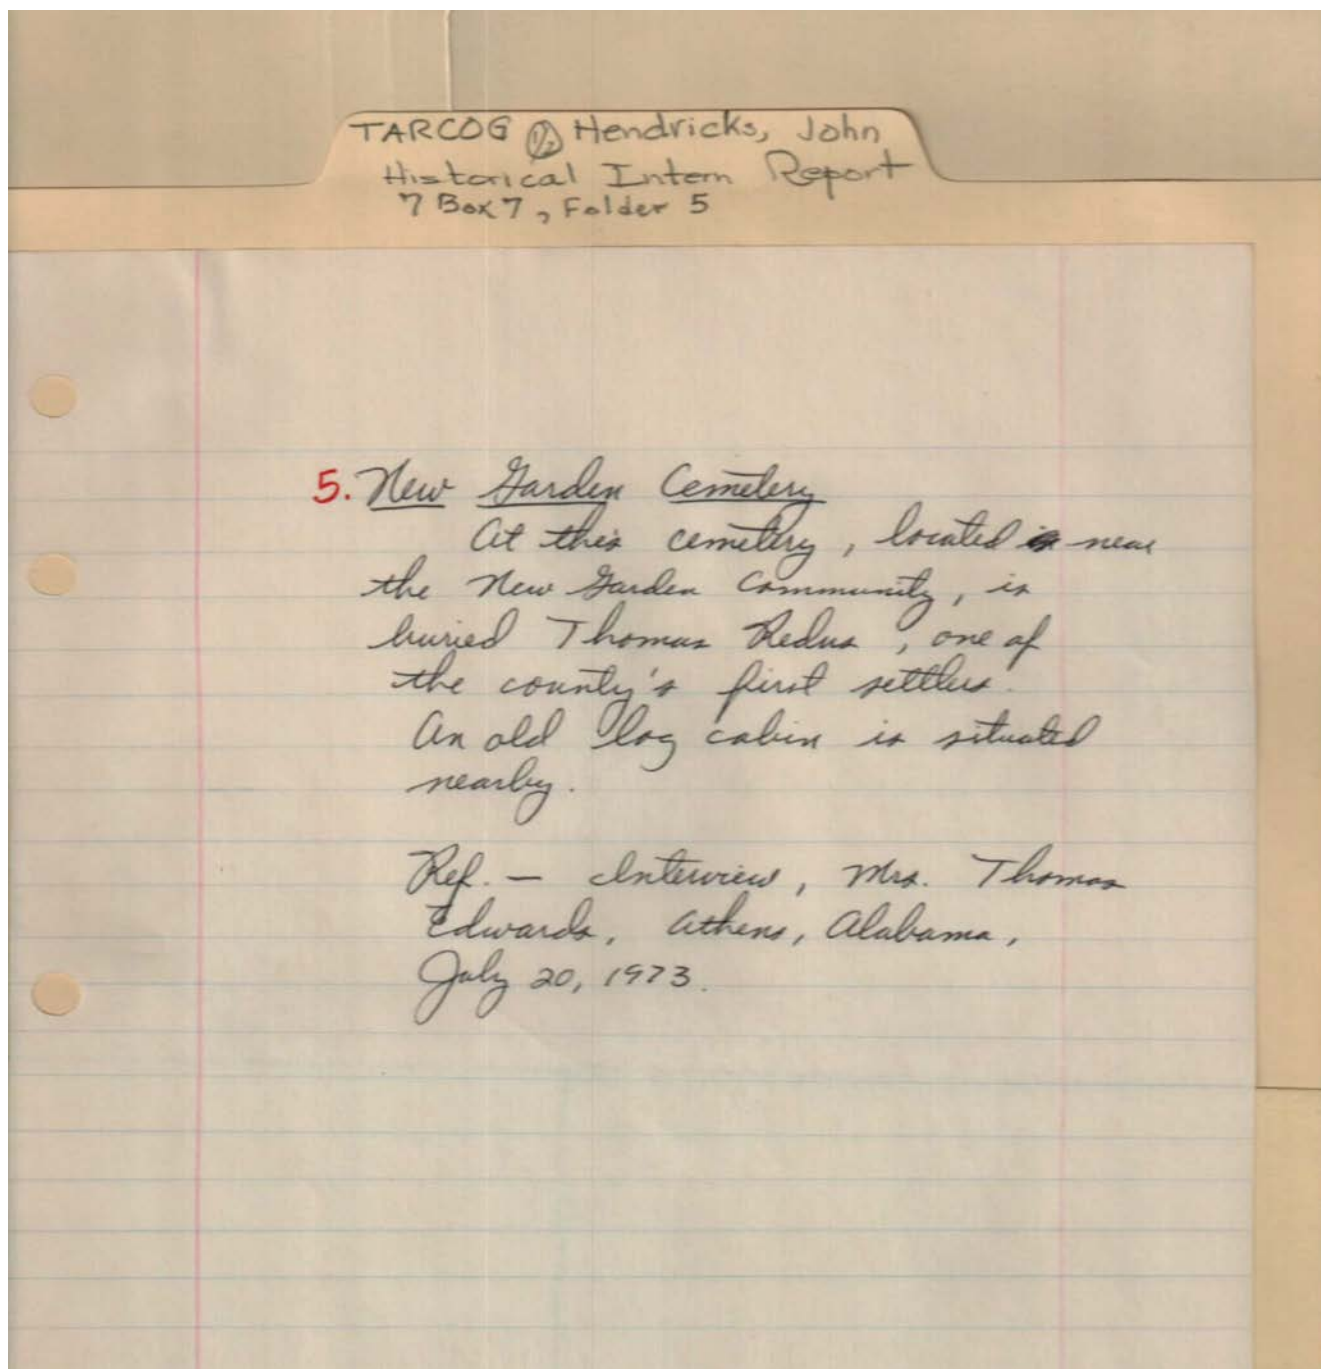 TARCOG 1/2 Hendricks, John
Historical Intern Report
7 Box 7, Folder 5
5. New Garden Cemetery
At this cemetery, located near
the New Garden Community, is
buried Thomas Redus, one of
the county's first settlers.
An old log cabin is situated
nearby.
Ref. — Interview, Mrs. Thomas
Edwards, Athens, Alabama,
July 20, 1973.